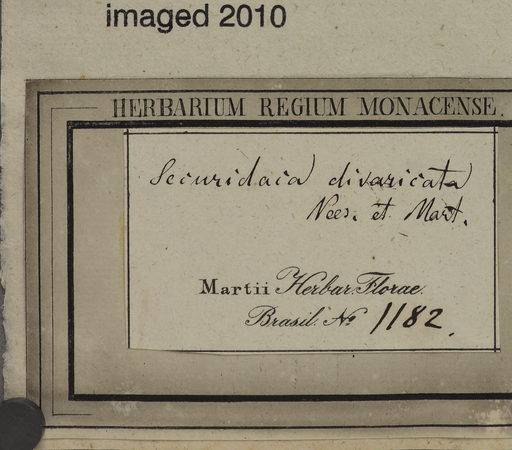 imaged 2010
HERBARIUM REGIUM MONACENSE.
Securidaca divaricata
Nees. et Mart.
Martii Herbar. Florae.
Brasil. No 1182.